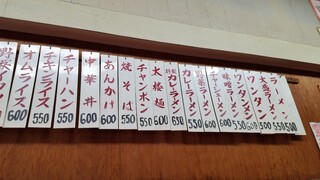 ラーメン 500
大盛ラーメン 550
ワンタン 500
ワンタンメン 600
味噌ラーメン 550
チャーシューメン 600
ラーメン 600
カレーラーメン 550
カレーラーメン 650
太極麺 600
チャンポン 550
焼そば 550
あんかけ 600
中華丼 600
チャーハン 550
チキンライス 550
オムライス 600